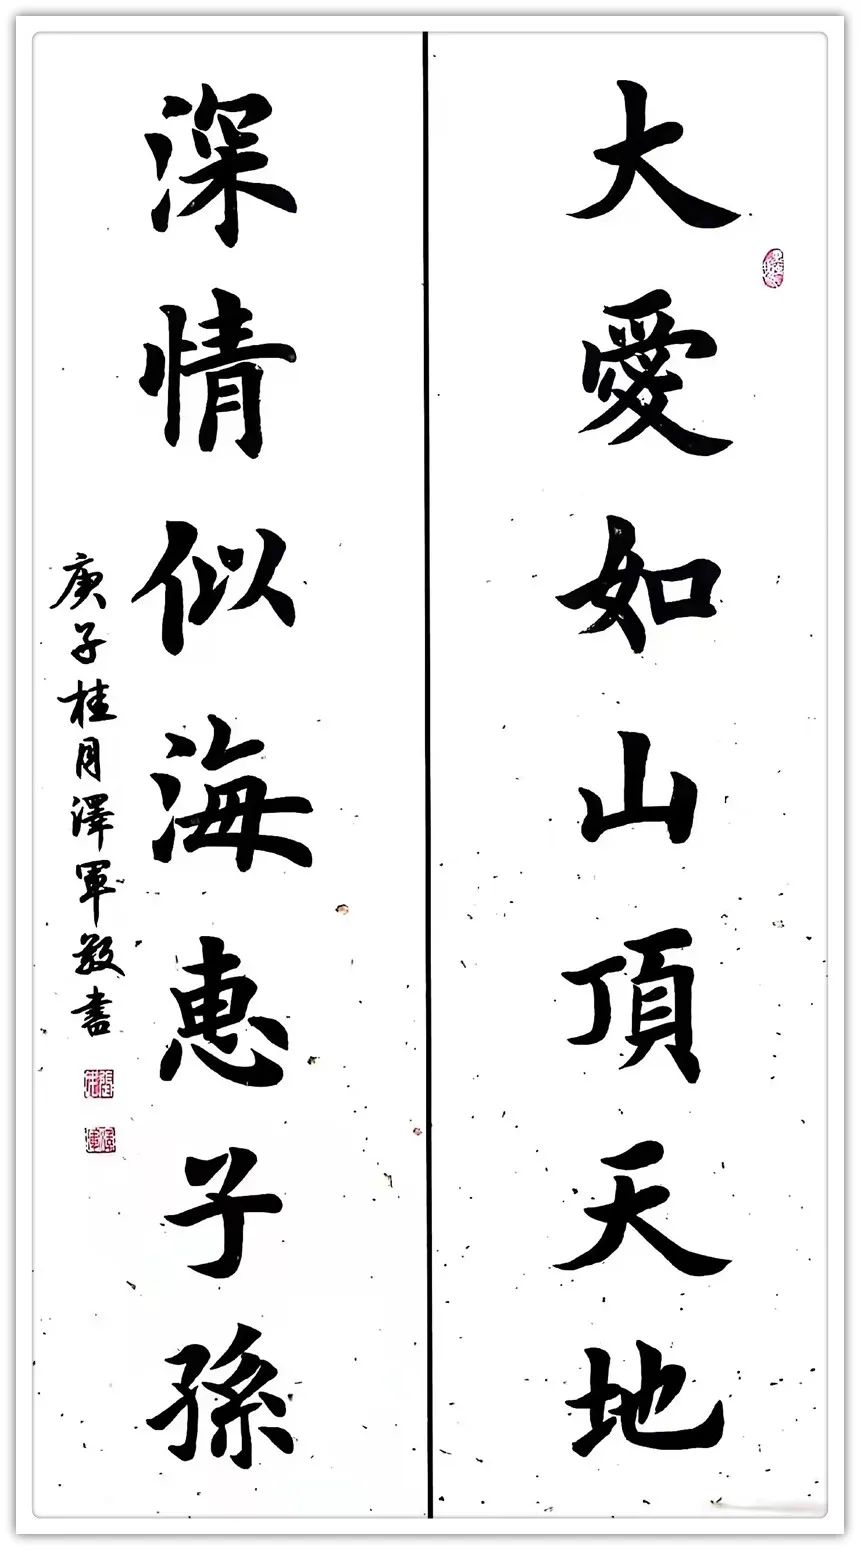 大愛如山頂天地
深情似海惠子孫
庚子桂月澤軍敬書